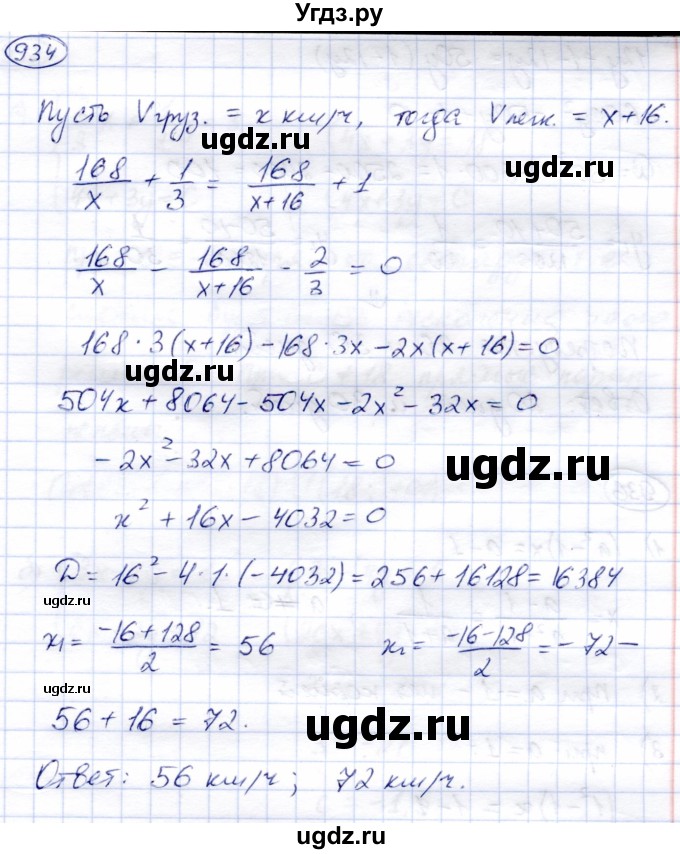 Угдз.ру
934
Пусть Vгруз. = x км/ч, тогда Vлегк. = x+16.
ugdz.ru
168/x + 1/3 = 168/(x+16) + 1
ugdz.ru
168/x - 168/(x+16) - 2/3 = 0
168·3(x+16)-168·3x-2x(x+16)=0
ugdz.ru
504x+8064-504x-2x²-32x=0
-2x²-32x+8064=0
ugdz.ru
x²+16x-4032=0
Д=16²-4·1·(-4032)=256+16128=16384
ugdz.ru
x₁= (-16+128)/2 = 56 x₂= (-16-128)/2 =-72-
ugdz.ru
56+16=72.
ugdz.ru
Ответ: 56 км/ч; 72 км/ч.
ugdz.ru
ugdz.ru